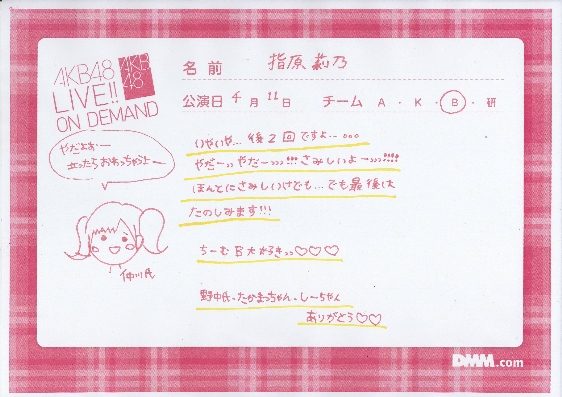 AKB48
LIVE!!
ON DEMAND
AKB
48
名前 指原莉乃
公演日 4月11日 チーム A・K・B・研
やだよぉー
立ったらおわっちゃうよー
仲川氏
いやいや…後2回ですよ……
やだーっっやだーっっっ!!!さみしいよーっっっ!!!!
ほんとにさみしいけども…でも最後は
たのしみます!!!
ちーむB大好きっっ♡♡♡
野中氏、たかまっちゃん、しーちゃん
ありがとう♡♡
DMM.com